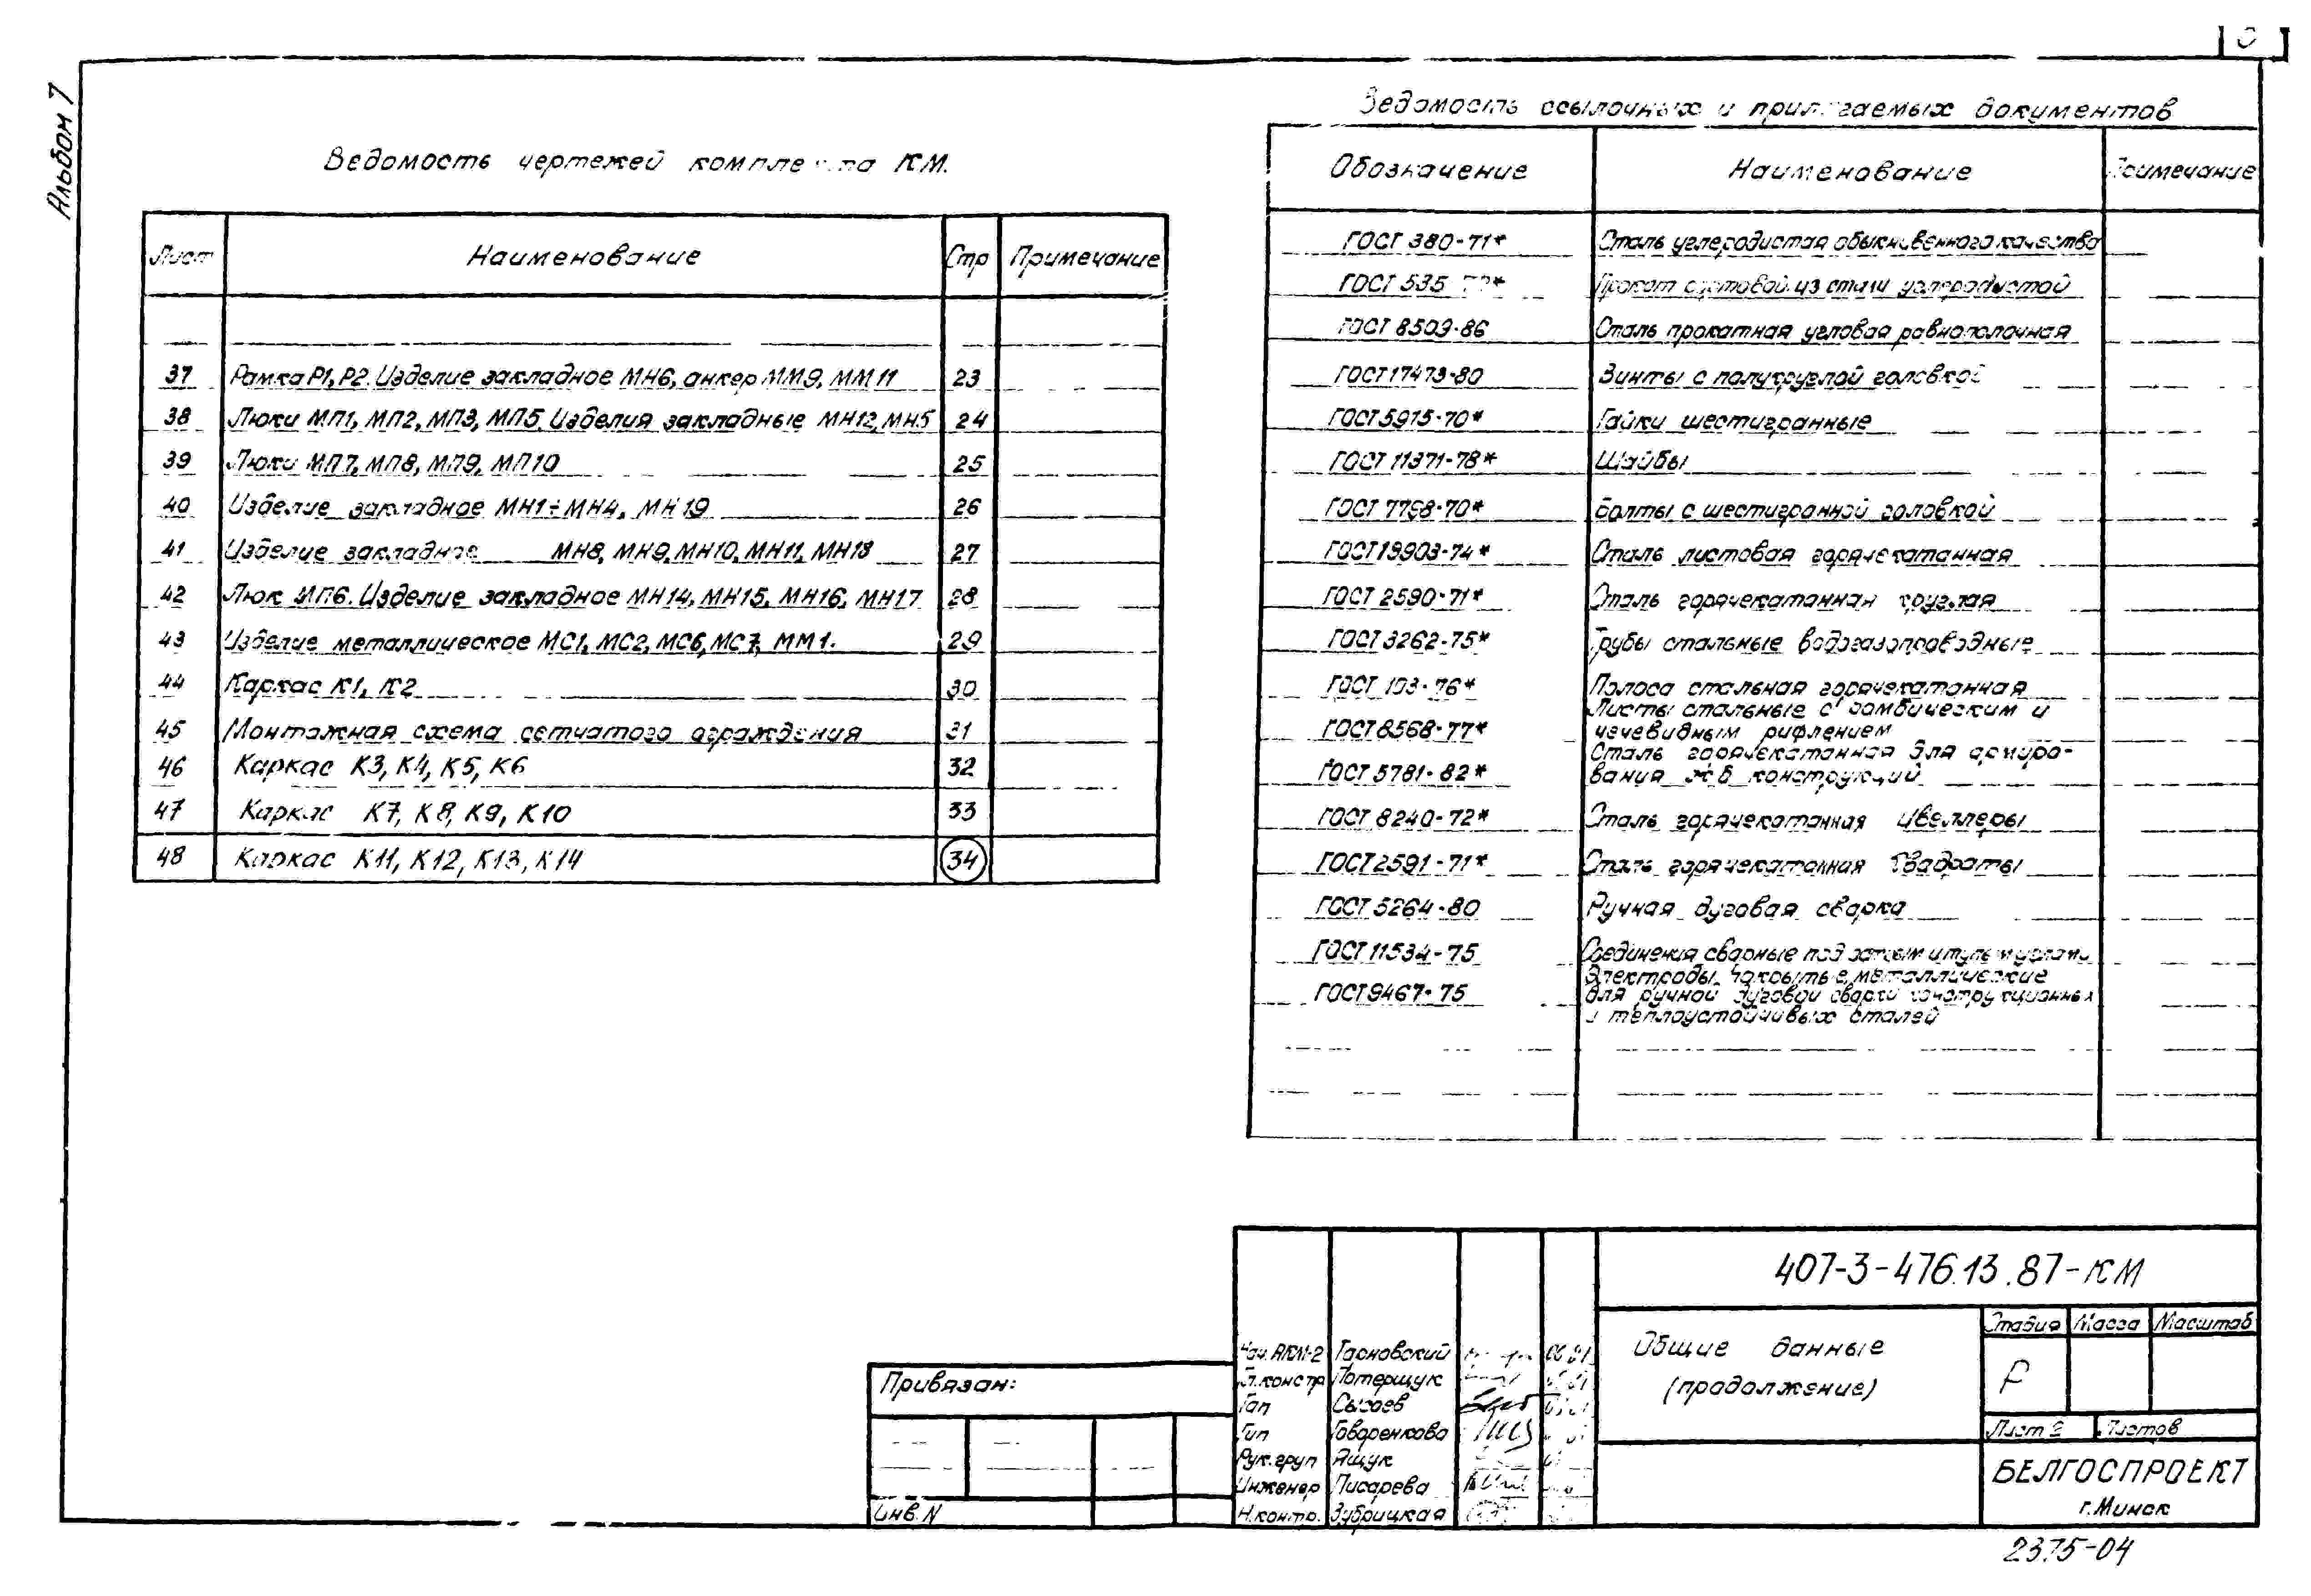 Альбом 7
Ведомость чертежей комплекта КМ.
Лист Наименование Стр Примечание
37 Рамка Р1, Р2. Изделие закладное МН6, анкер ММ9, ММ11 23
38 Люки МП1, МП2, МП3, МП5. Изделия закладные МН12, МН5 24
39 Люки МП7, МП8, МП9, МП10 25
40 Изделие закладное МН1÷МН4, МН19 26
41 Изделие закладное МН8, МН9, МН10, МН11, МН18 27
42 Люк МП6. Изделие закладное МН14, МН15, МН16, МН17 28
43 Изделие металлическое МС1, МС2, МС6, МС7, ММ1. 29
44 Каркас К1, К2 30
45 Монтажная схема сетчатого ограждения 31
46 Каркас К3, К4, К5, К6 32
47 Каркас К7, К8, К9, К10 33
48 Каркас К11, К12, К13, К14 34
Ведомость ссылочных и прилагаемых документов
Обозначение Наименование Примечание
ГОСТ 380-71* Сталь углеродистая обыкновенного качества
ГОСТ 535 Прокат сортовой из стали углеродистой
ГОСТ 8509-86 Сталь прокатная угловая равнополочная
ГОСТ 17473-80 Винты с полукруглой головкой
ГОСТ 5915-70* Гайки шестигранные
ГОСТ 11371-78* Шайбы
ГОСТ 7798-70* Болты с шестигранной головкой
ГОСТ 19903-74* Сталь листовая горячекатанная
ГОСТ 2590-71* Сталь горячекатанная круглая
ГОСТ 3262-75* Трубы стальные водогазопроводные
ГОСТ 103-76* Полоса стальная горячекатанная
ГОСТ 8568-77* Листы стальные с ромбическим и
чечевидным рифлением
ГОСТ 5781-82* Сталь горячекатанная для армиро-
вания ж б конструкций
ГОСТ 8240-72* Сталь горячекатанная Швеллеры
ГОСТ 2591-71* Сталь горячекатанная Квадраты
ГОСТ 5264-80 Ручная дуговая сварка
ГОСТ 11534-75 Соединения сварные под острыми и тупыми углами
ГОСТ 9467-75 Электроды покрытые металлические
для ручной дуговой сварки конструкционных
и теплоустойчивых сталей
407-3-476.13.87-КМ
Общие данные
(продолжение)
Стадия Масса Масштаб
Р
Лист 2 Листов
БЕЛГОСПРОЕКТ
г. Минск
Нач. АКМ-2 Тарновский
Гл. констр Потерщук
Гап Сысоев
Гип Говоренкова
Рук. груп Ящук
Инженер Писарева
Н. контр. Зубрицкая
Привязан:
Инв. N
2375-04